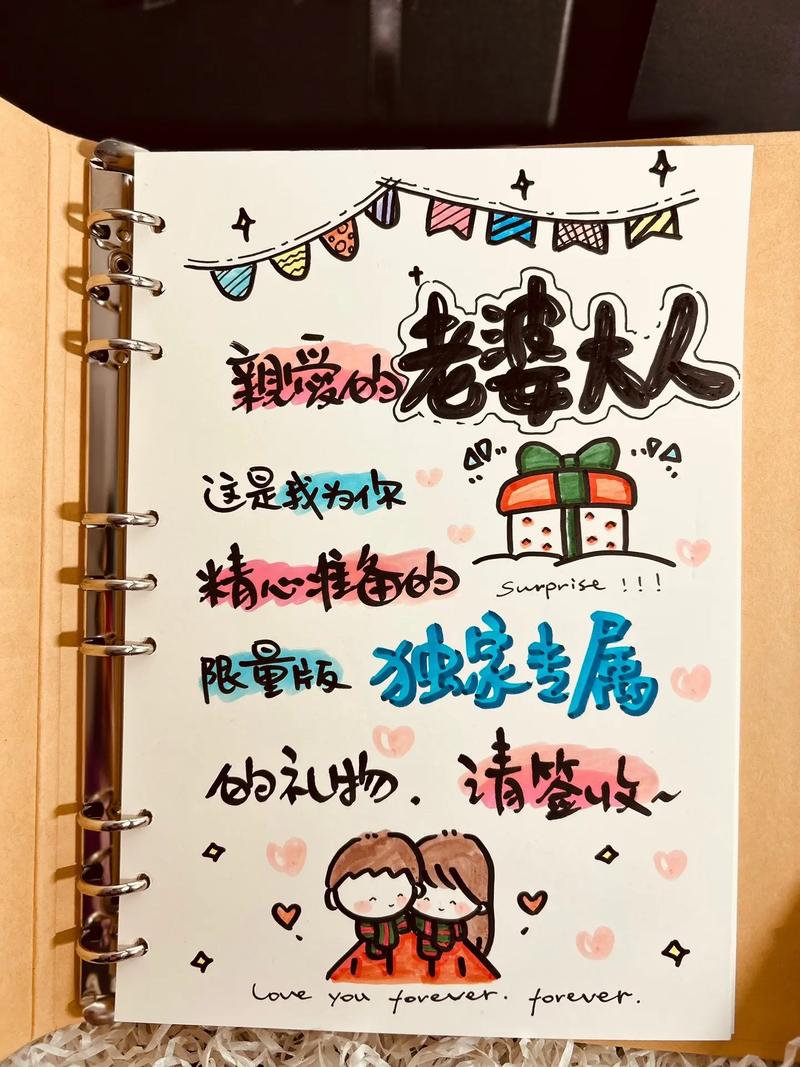 親愛的老婆大人
这是我为你
精心准备的
Surprise !!!
限量版 独家专属
的礼物. 请签收~
Love you forever. forever.